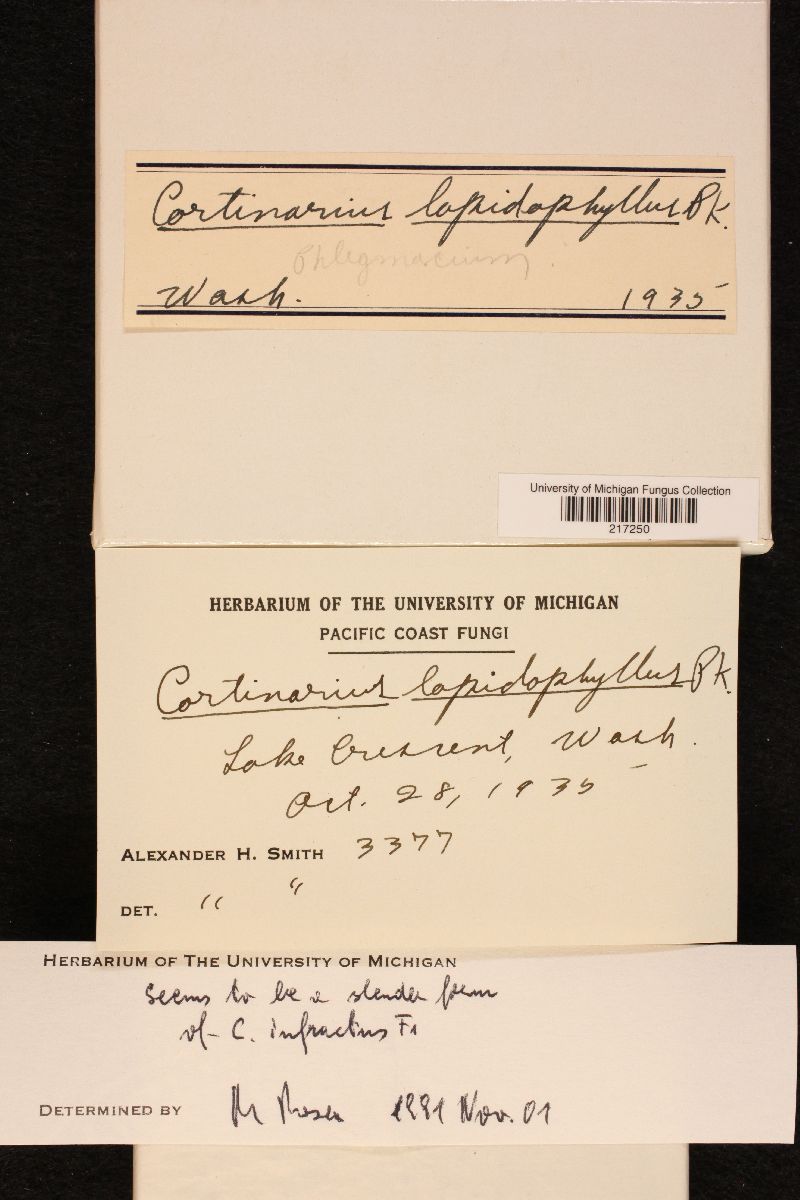 Cortinarius lapidophyllus Pk.
Phlegmacium
Wash. 1935
University of Michigan Fungus Collection
217250
HERBARIUM OF THE UNIVERSITY OF MICHIGAN
PACIFIC COAST FUNGI
Cortinarius lapidophyllus Pk.
Lake Crescent, Wash.
Oct. 28, 1935
ALEXANDER H. SMITH 3377
DET. " "
HERBARIUM OF THE UNIVERSITY OF MICHIGAN
seems to be a slender form
of C. infractus Fr
DETERMINED BY M Moser 1991 Nov. 01